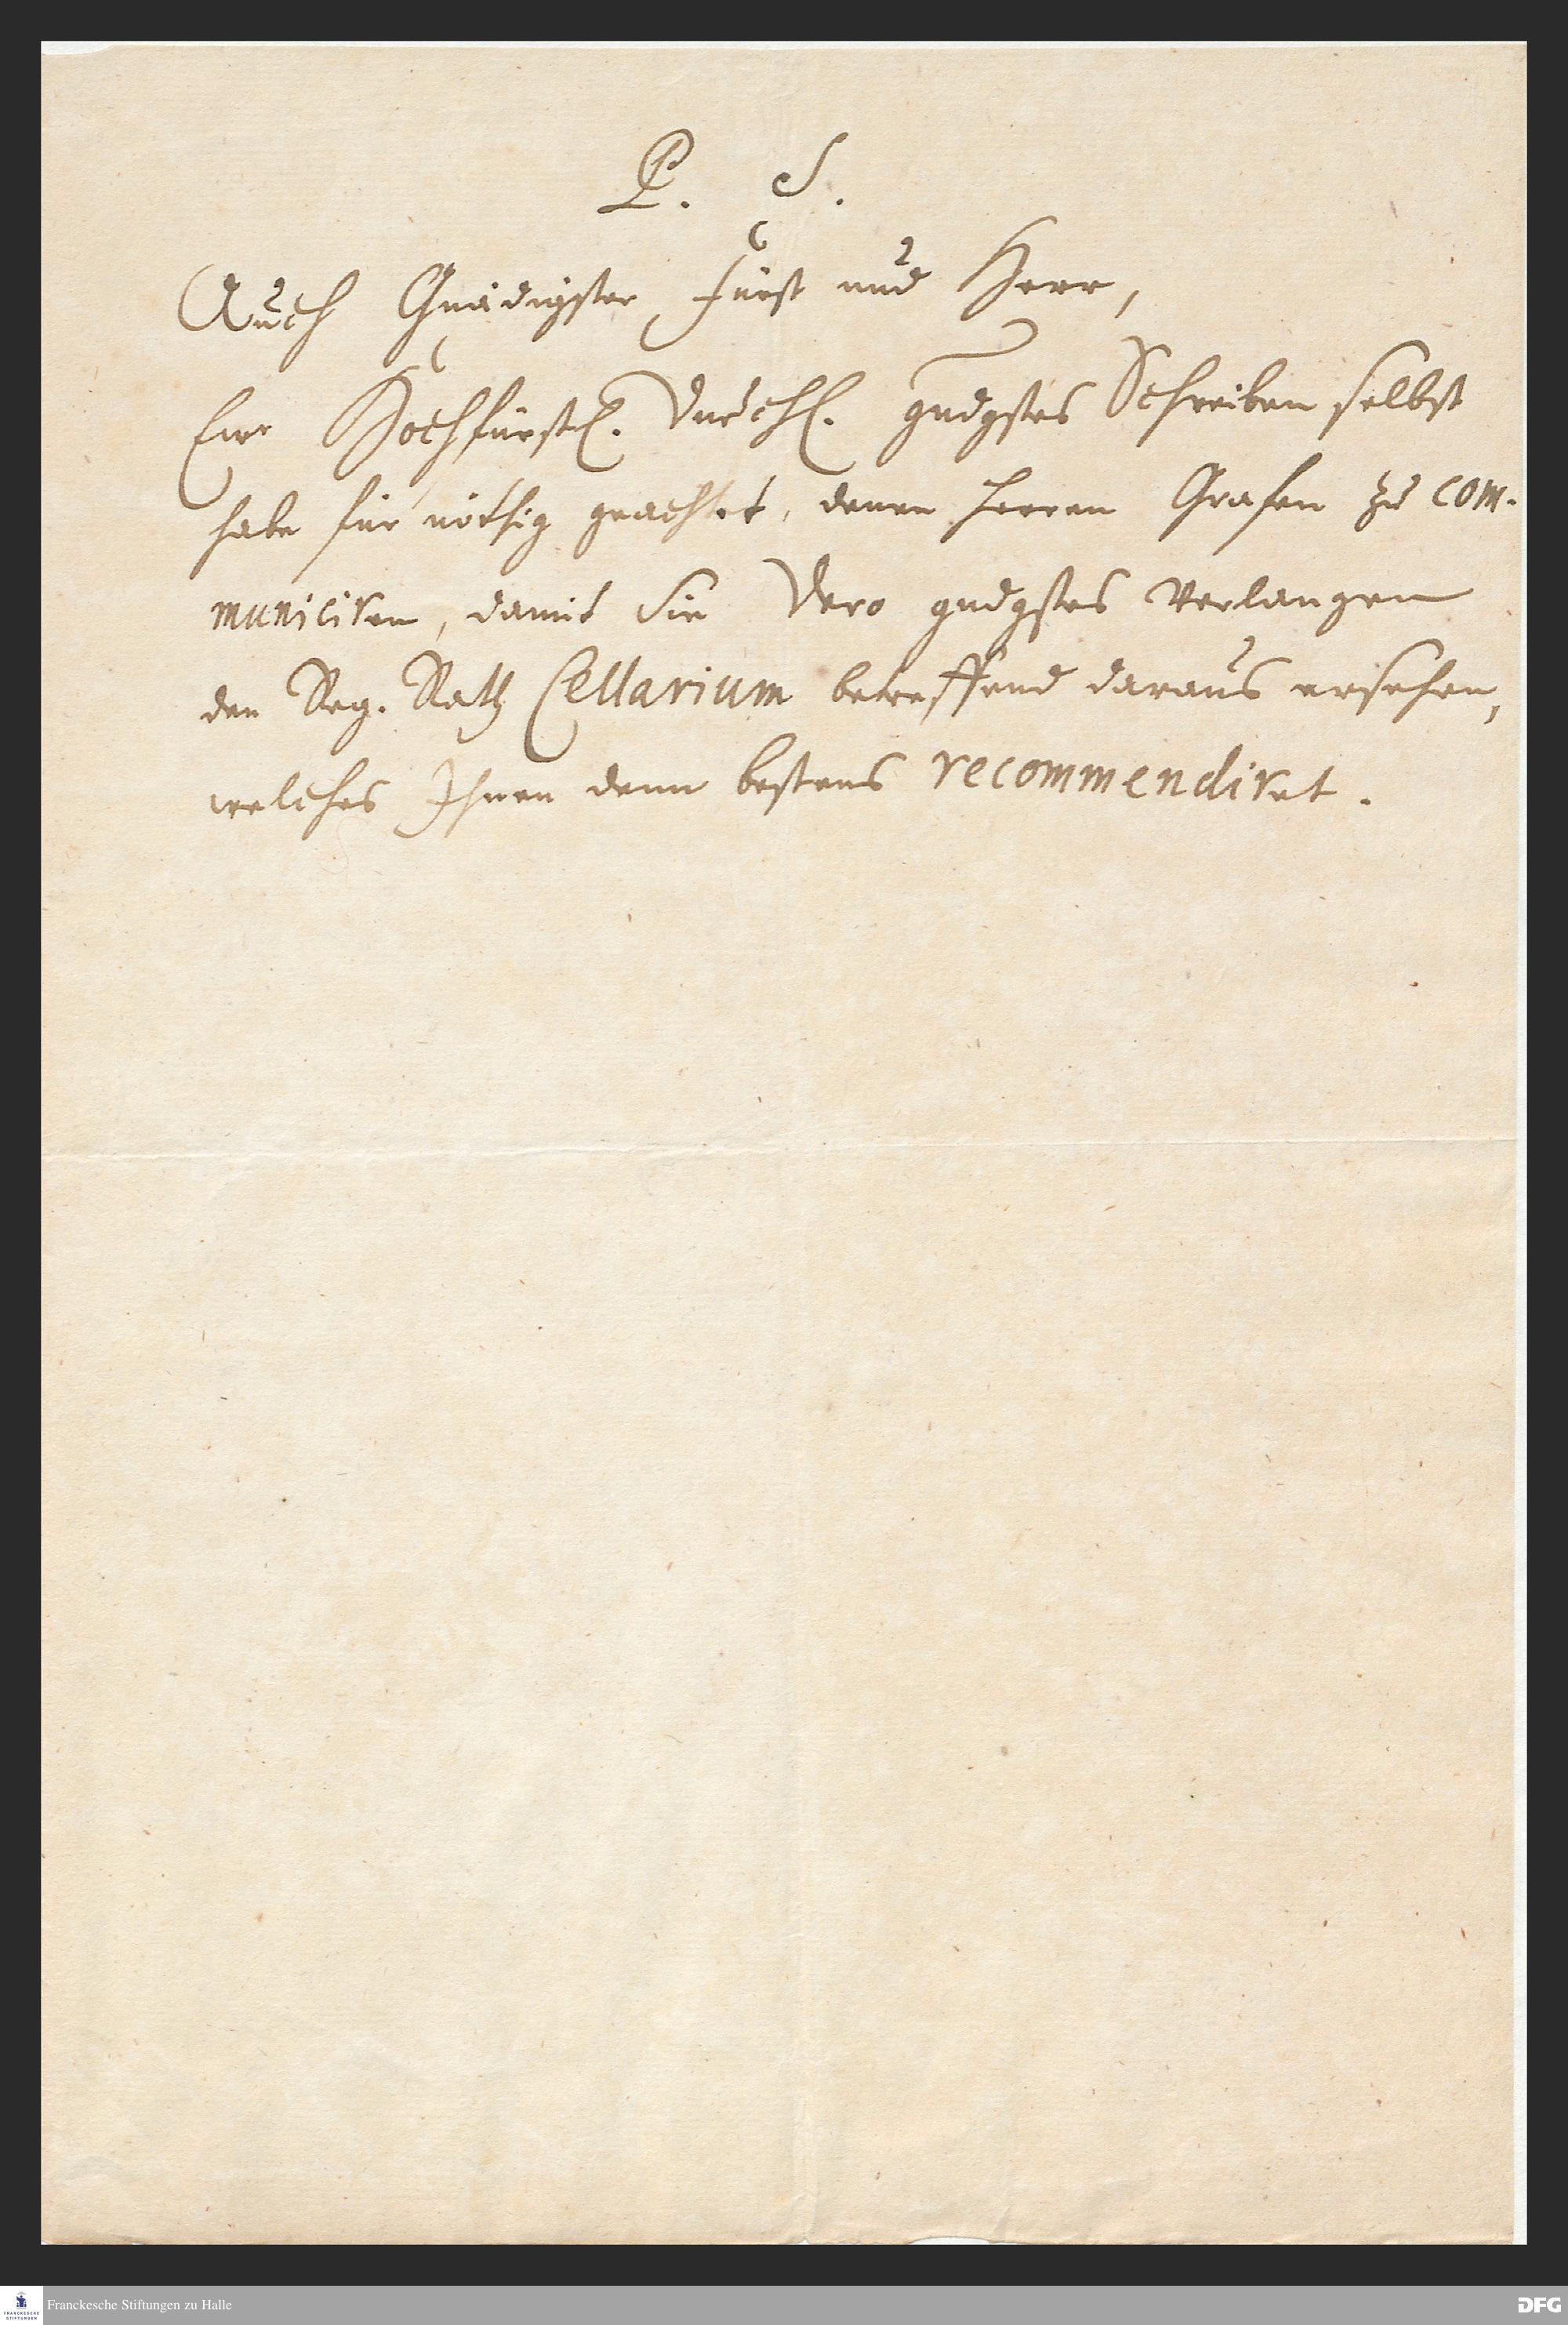 P. S.
Auch Gnädigster Fürst und Herr,
Eur Hochfürstl. Durchl. gndgstes Schreiben selbst
habe für nöthig geachtet, denen Herren Grafen zu com-
municiren, damit Sie Dero gndgstes Verlangen
den Reg. Rath Cellarium betreffend daraus ersehen,
welches Ihnen denn bestens recommendiret.
FRANCKESCHE
STIFTUNGEN
Franckesche Stiftungen zu Halle
DFG